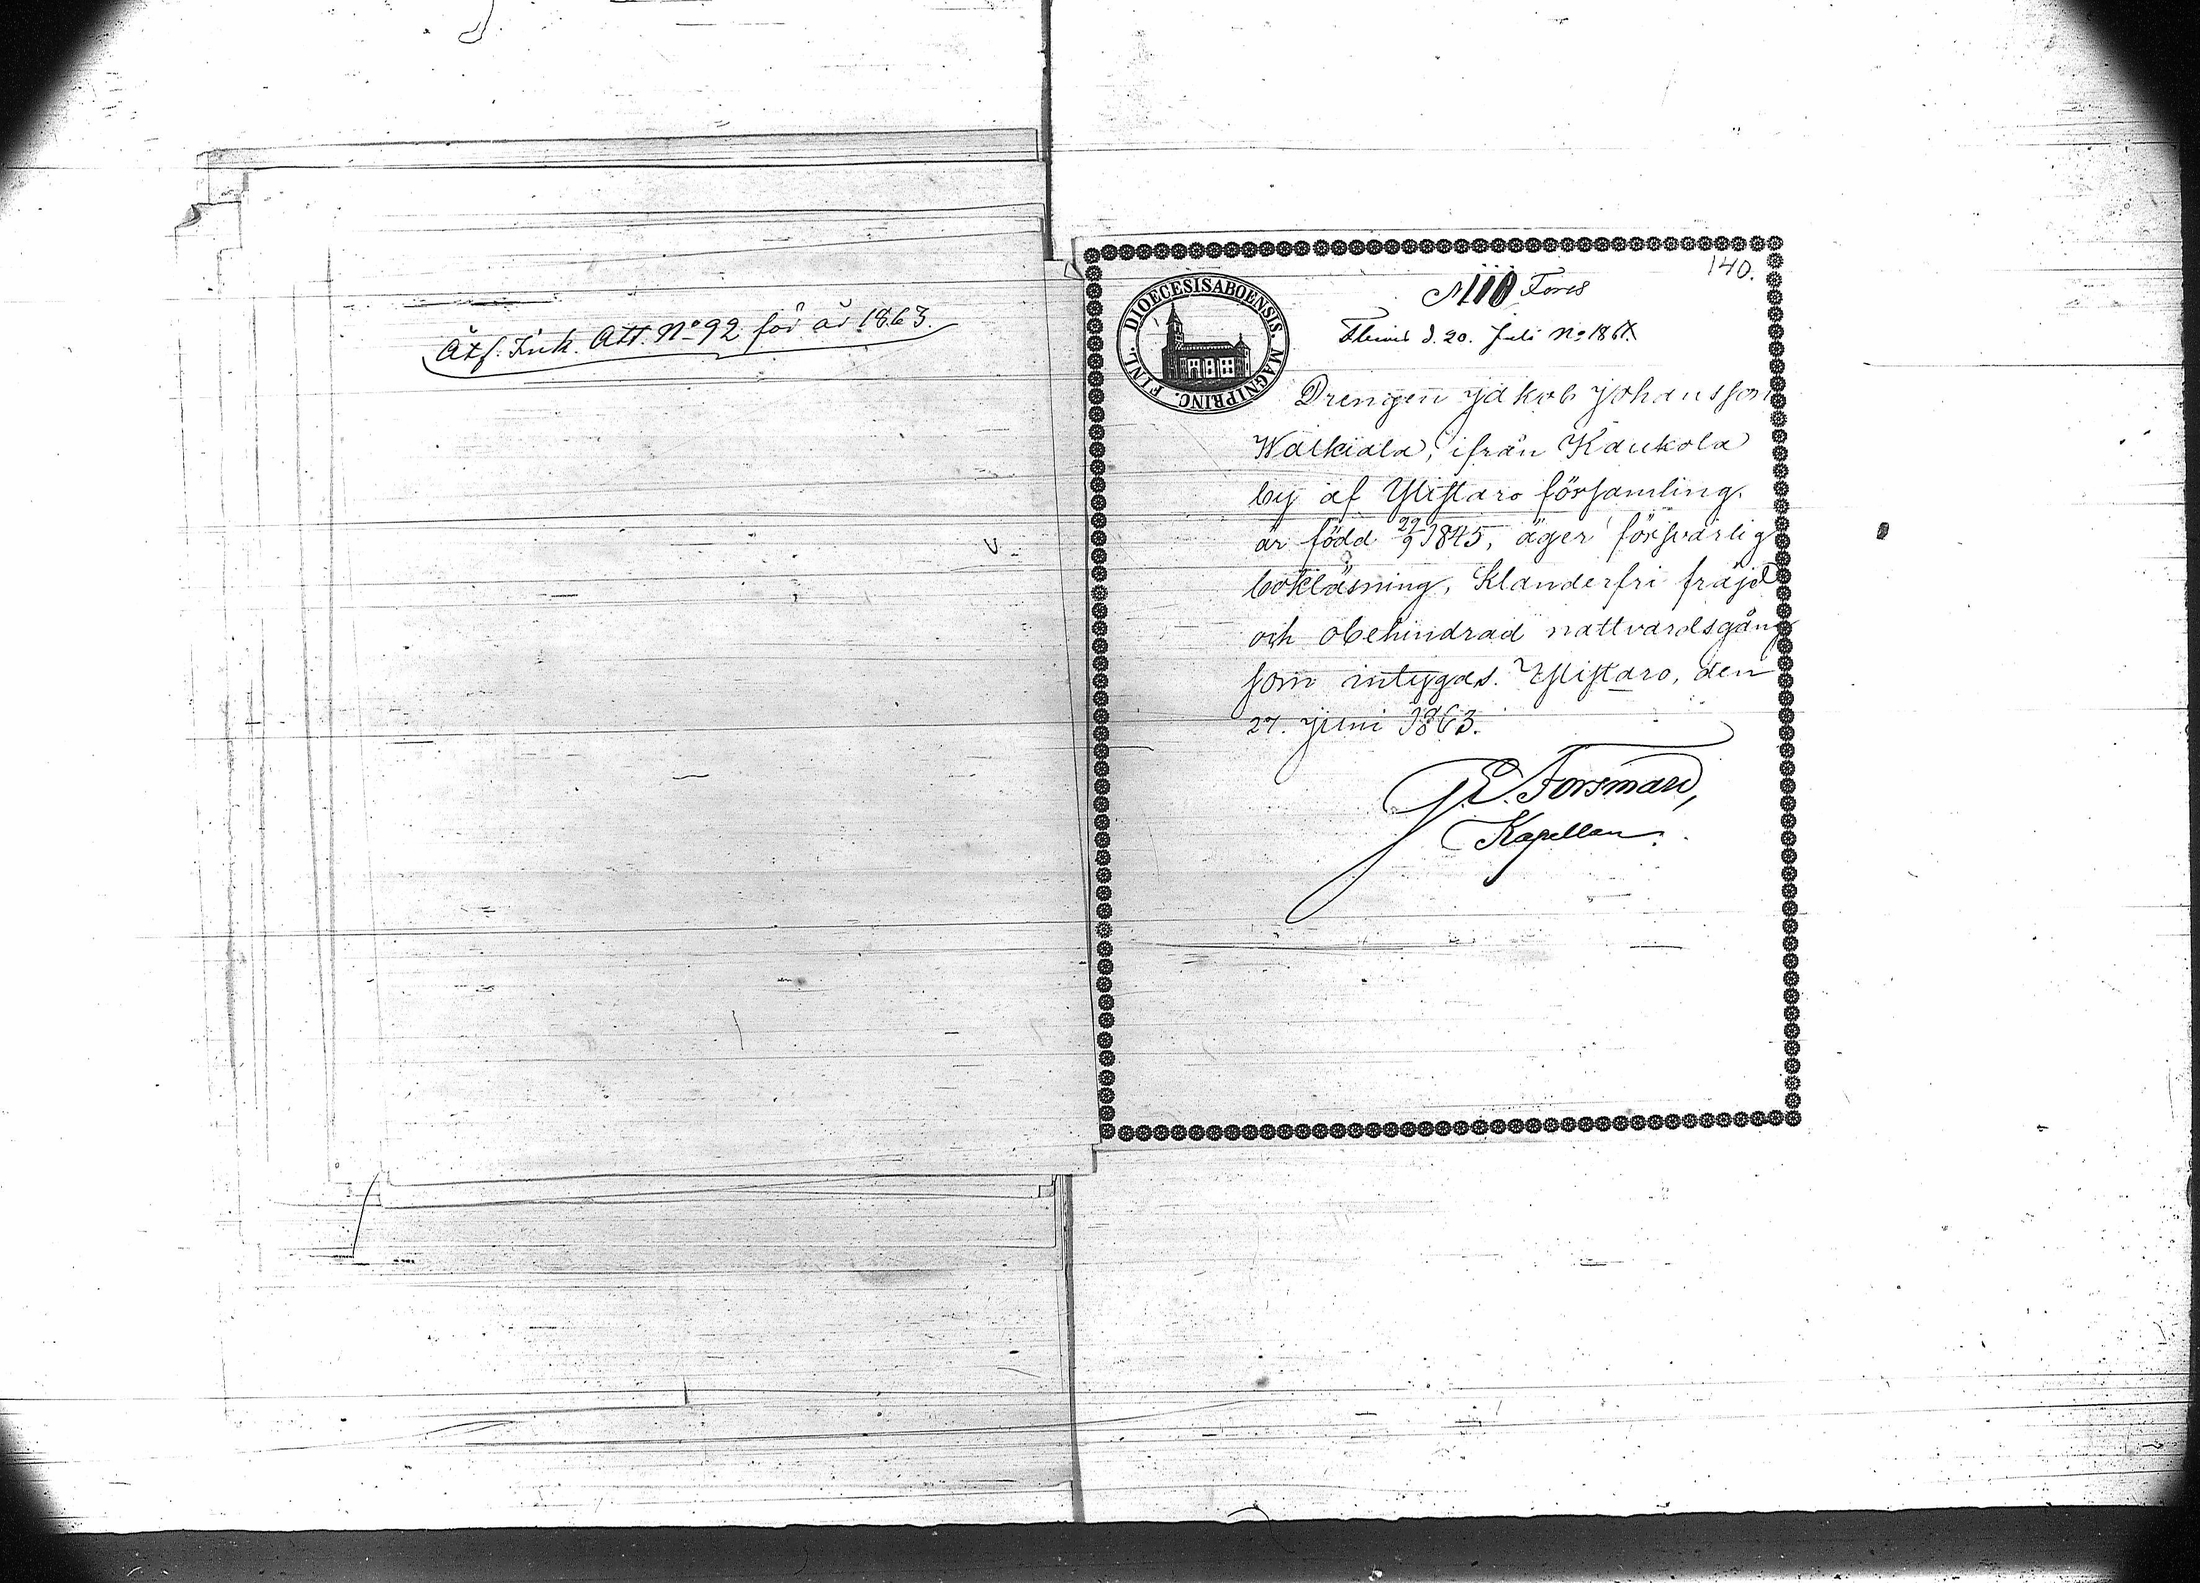 Att. No 92 för år 1863.
140.
110
d. 20. Juli
DIOECESIS ABOENSIS. MAGNI PRINC. FINL.
Drengen Jakob Johansson
Walkiala, ifrån Kaukola
by af Ylistaro församling,
är född 29/9 1845, äger försvarlig
bokläsning, klanderfri fräjd
och obehindrad nattvardsgång
som intygas. Ylistaro, den
27. Juni 1863.
Forsman,
Kapellan.